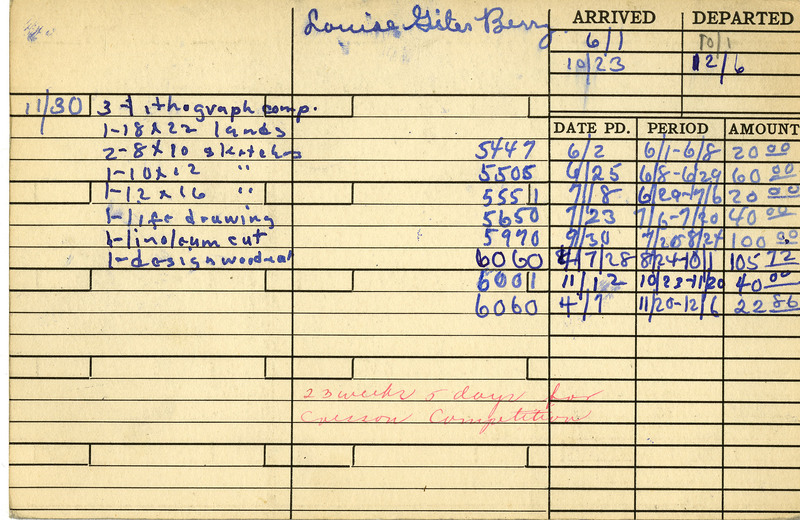 Louise Giles Berry
ARRIVED DEPARTED
6/1 10/1
10/23 12/6
11/30 3-Lithograph comp.
1-18x22 lands
DATE PD. PERIOD AMOUNT
2-8x10 sketches 5447 6/2 6/1-6/8 20 00
1-10x12 " 5505 6/25 6/8-6/29 60 00
1-12x16 " 5551 7/8 6/29-7/6 20 00
1-life drawing 5650 7/23 7/6-7/20 40 00
1-linoleum cut 5970 9/30 7/20 8/24 100 00
1-design woodcut 6060 4/7/28 8/24-10/1 105 72
6001 11/12 10/23-11/20 40 00
6060 4/7 11/20-12/6 22 86
23 weeks 5 days for
Cresson Competition